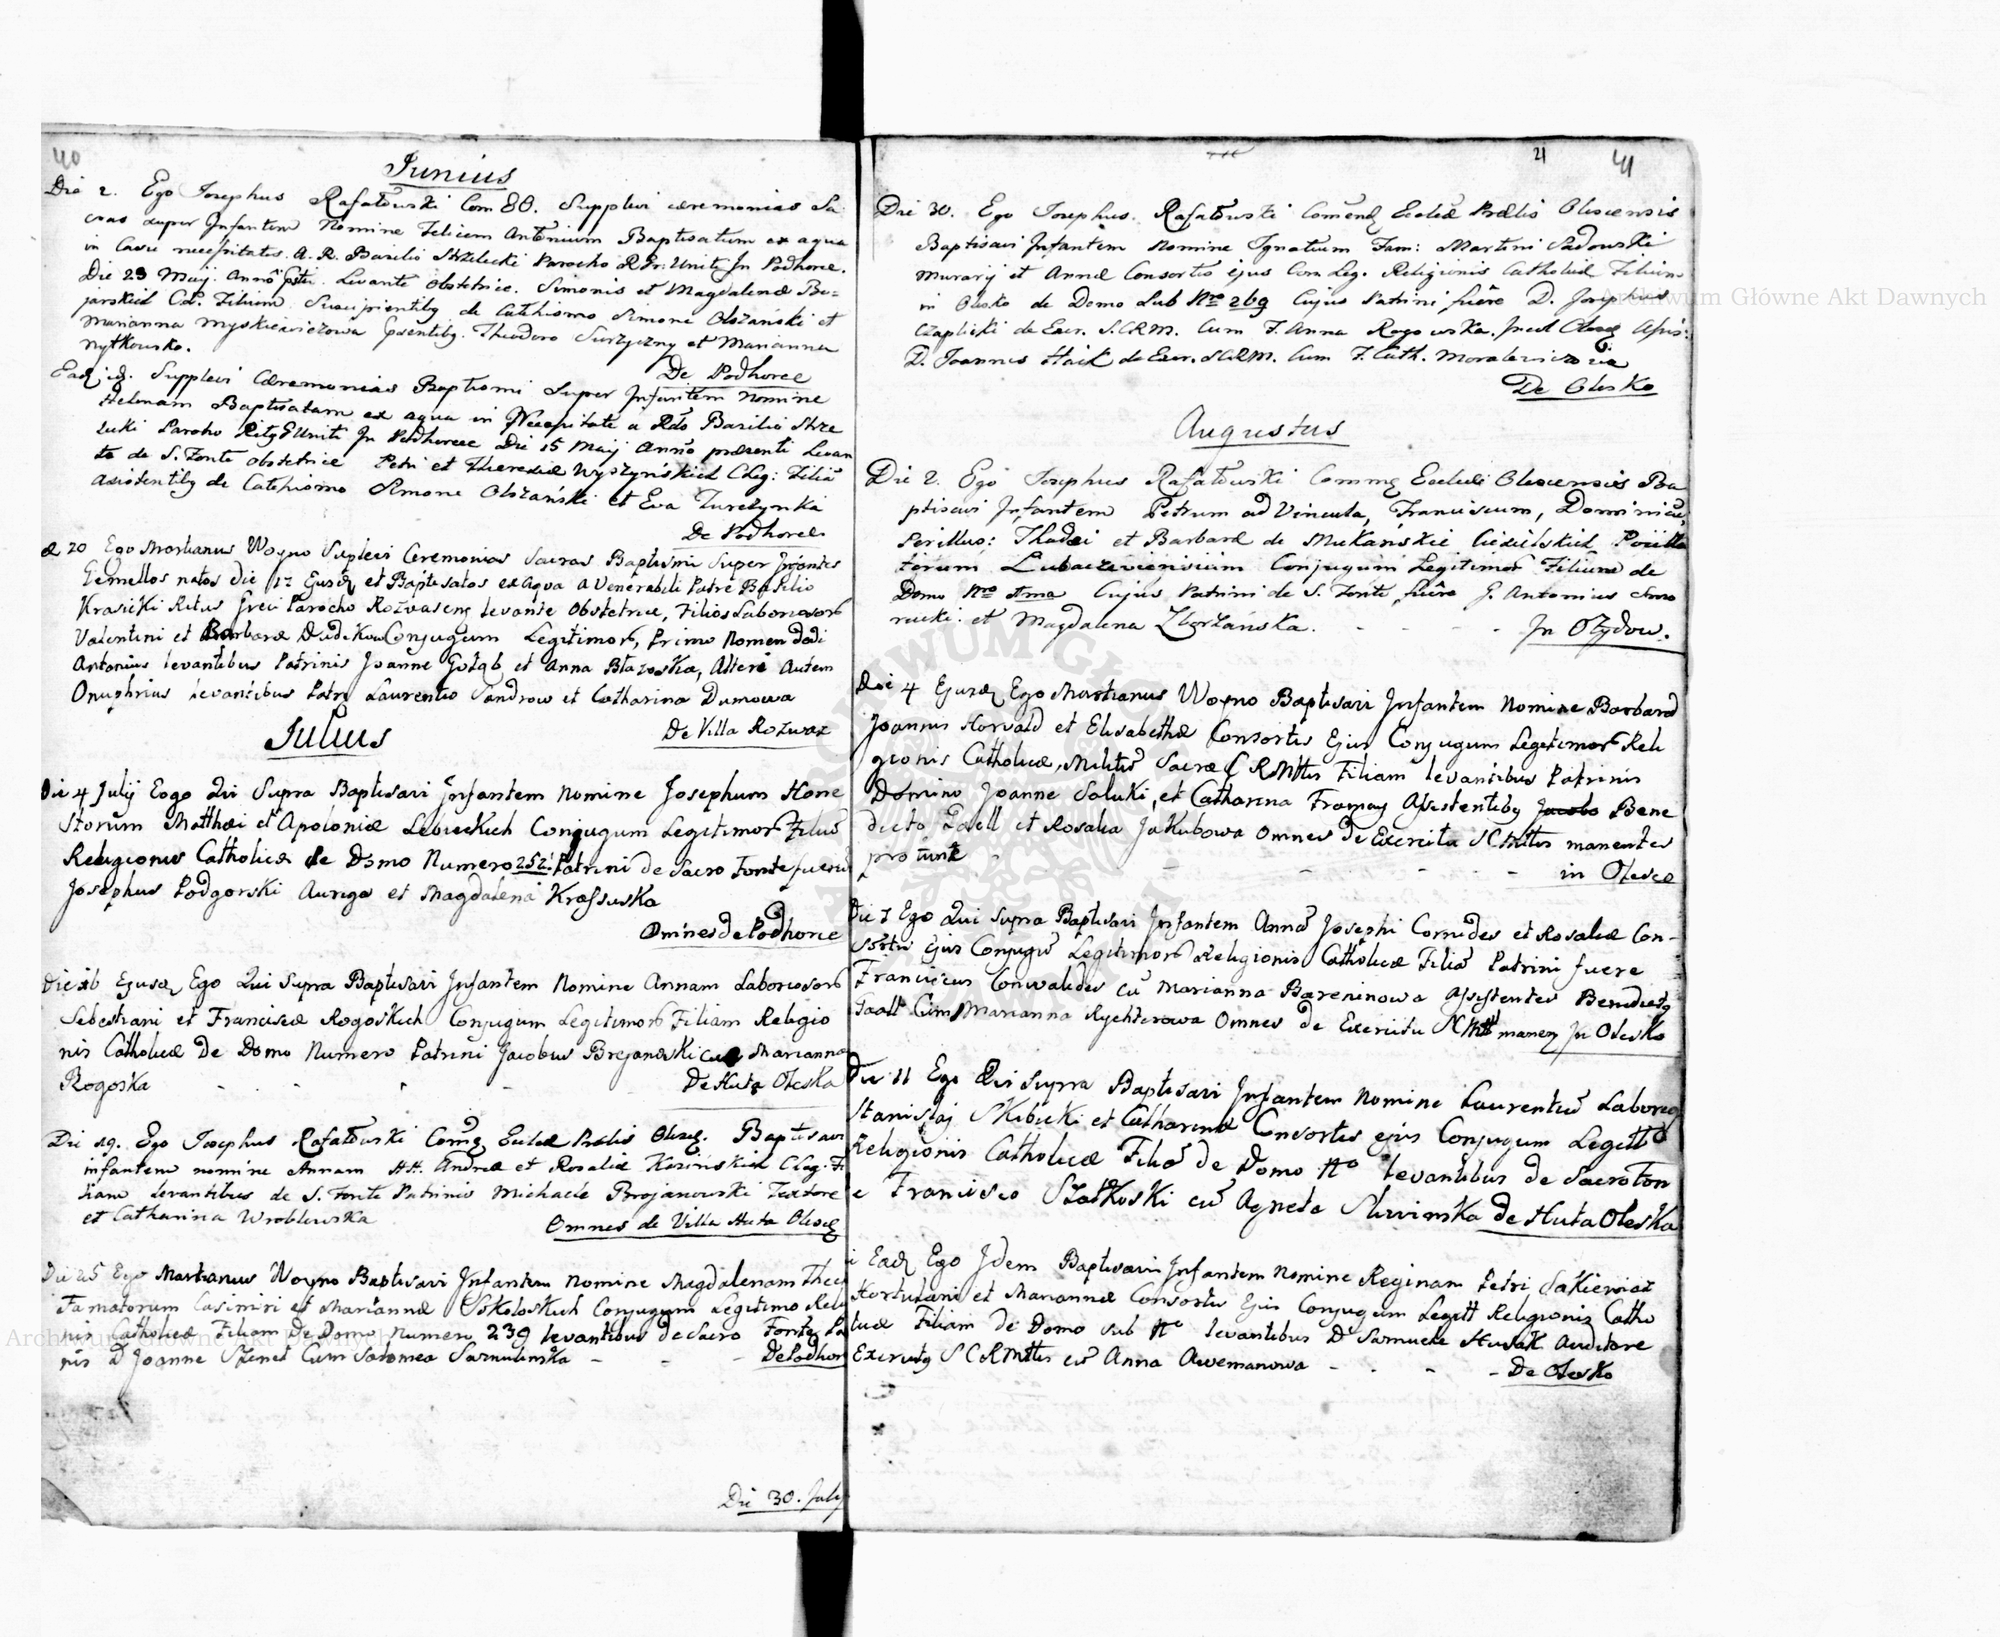 40
Junius
Die 2. Ego Josephus Rafałowski Com EO. Supplevi caeremonias Sa
cras super Infantem Nomine Felicem Antonium Baptisatum ex aqua
in Casu necessitatis A. R. Basilio Strzelecki Parocho R. Gr. Uniti In Podhorce.
Die 29 Maij Anno Levante Obstetrice. Simonis et Magdalenae Be=
jarskich C.L. Filium. Suscipientibq de Cathismo Simone Olszański et
Marianna Myskiewiczowa Theodoro Surzyczny et Marianna
Nytkowska.
De Podhorce
Eadq Supplevi Caeremonias Baptismi Super Infantem Nomine
Helenam Baptisatam ex aqua in Necessitate a Rdo Basilio Strze
lecki Parocho Uniti In Podhorce Die 15 Maij Anno praesenti Levan
te de S. Fonte Obstetrice Petri et Theresiae Wyszyńskich CLeg: Filia
Assistentibq de Catechismo Simone Olszański et Eva Turczynka
De Podhorce
20 Ego Martianus Woyno Suplevi Ceremonias Sacras Baptismi Super Infantes
Gemellos natos die 17 Ejusdq et Baptisatos ex Aqua a Venerabili Patre Basilio
Krasicki Ritus Greci Parocho Rozvaseng levante Obstetrice, Filios Laboriosor
Valentini et Barbarae Dudikow Conjugum Legitimor, Primo Nomen dedi
Antonius levantibus Patrinis Joanne Gołąb et Anna Błazoska, Altere Autem
Onuphrius Levantibus Patrq Laurentio Sandrow et Catharina Dumowa
De Villa Rozwaz
Julius
Die 4 Julij Eogo Qui Supra Baptisavi Infantem Nomine Josephum Hone
Storum Matthaei et Apoloniae Lebieckich Conjugum Legitimor Filiu
Religionis Catholicae de Domo Numero 252 Patrini de Sacro Fonte fueru
Josephus Podgorski Auriga et Magdalena Krassuska
Omnes de Podhorce
Die 16 Ejusdq Ego Qui Supra Baptisavi Infantem Nomine Annam Laboriosor
Sebestiani et Franciscae Rogoskich Conjugum Legitimor Filiam Religio
nis Catholicae De Domo Numero Patrini Jacobus Brejanowski cum Marianna
Rogoska - - - - De Huta Oleska
Die 19. Ego Josephus Rafałowski Comq Eccliae Oleseq. Baptisavi
infantem nomine Annam HH. Andreae et Rosaliae Kozińskich CLeg. Fi
liam Levantibus de S. Fonte Patrinis Michaele Brojanowski Textore
et Catharina Wroblewska
Omnes de Villa Huta Oleseq
Die 25 Ego Martianus Woyno Baptisavi Infantem Nomine Magdalenam
Famatorum Casimiri et Mariannae Sokołoskich Conjugum Legitimo Reli
nis Catholicae Filiam De Domo Numero 239 levantibus de Sacro Fonte Pa
nis D Joanne Szenet Cum Salomea Samulinska - - -
De Podhor
Die 30. July
21 41
Die 30. Ego Josephus Rafałowski Comend Eccliae Olescensis
Baptisavi Infantem Nomine Ignatium Fam: Martini Sadowski
Murarij et Annae Consortis ejus Con. Leg. Religionis Catholicae Filium
in Olesko de Domo Sub Nro 269 Cujus Patrini fuere D. Josephus
Czaplicki de Exer. S.C.R.M. Cum F. Anna Rogowska.
D. Joannes Haik de Exer. SCRM. Cum F. Cath. Moralewiczowa
De Olesko
Augustus
Die 2. Ego Josephus Rafałowski Commq Eccliae Olescensis Ba
ptisavi Infantem Petrum ad Vincula, Franciscum, Dominicu,
Perillus: Thadaei et Barbarae de Mukańskie
Conjugum Legitimor Filium de
Domo Nro Cujus Patrini de S. Fonte fuere G. Antonius
et Magdalena Zborzańska. - - - In Ożydow.
Die 4 Ejusdq Ego Martianus Woyno Baptisavi Infantem Nomine Barbara
Joannis Horvald et Elisabethae Consortis Ejus Conjugum Legitimor Reli
gionis Catholicae, Militis Sacrae C R Mttis Filiam levantibus Patrinis
Domino Joanne Saluki, et Catharina Framay Assistentibq Jacobo Bene
dicto Gaell et Rosalia Jakubowa Omnes de Exercitu SCMttis manentes
pro tunc - - - - - in Olesce
Die 7 Ego Qui Supra Baptisavi Infantem Anna Josephi Cornides et Rosaliae Con-
sortis Ejus Conjugu Legitimor Religionis Catholicae Filia Patrini fuere
Franciscus Conwalides cu Marianna Bareninowa Assistentes Benedictq
Gaall Cum Marianna Rychterowa Omnes de Exercitu SCMtt manenq In Olesko
Die 11 Ego Qui Supra Baptisavi Infantem Nomine Laurentiu Laborio
Stanislaj Skibicki et Catharinae Consortis ejus Conjugum Legitt
Religionis Catholicae Filiu de Domo No levantibus de Sacro Fon
e Francisco Szatkoski cu Agneta Sliwinska de Huta Oleska
Eadq Ego Idem Baptisavi Infantem Nomine Reginam Petri Sakiewicz
Hortulani et Mariannae Consortis Ejus Conjugum Legitt Religionis Catho
licae Filiam de Domo sub No levantibus D Samuele Husak Auditore
Exercitq S C R Mttis cu Anna Awemanowa - - -
De Olesko
Archiwum Główne Akt Dawnych
Archiwum Główne Akt Dawnych